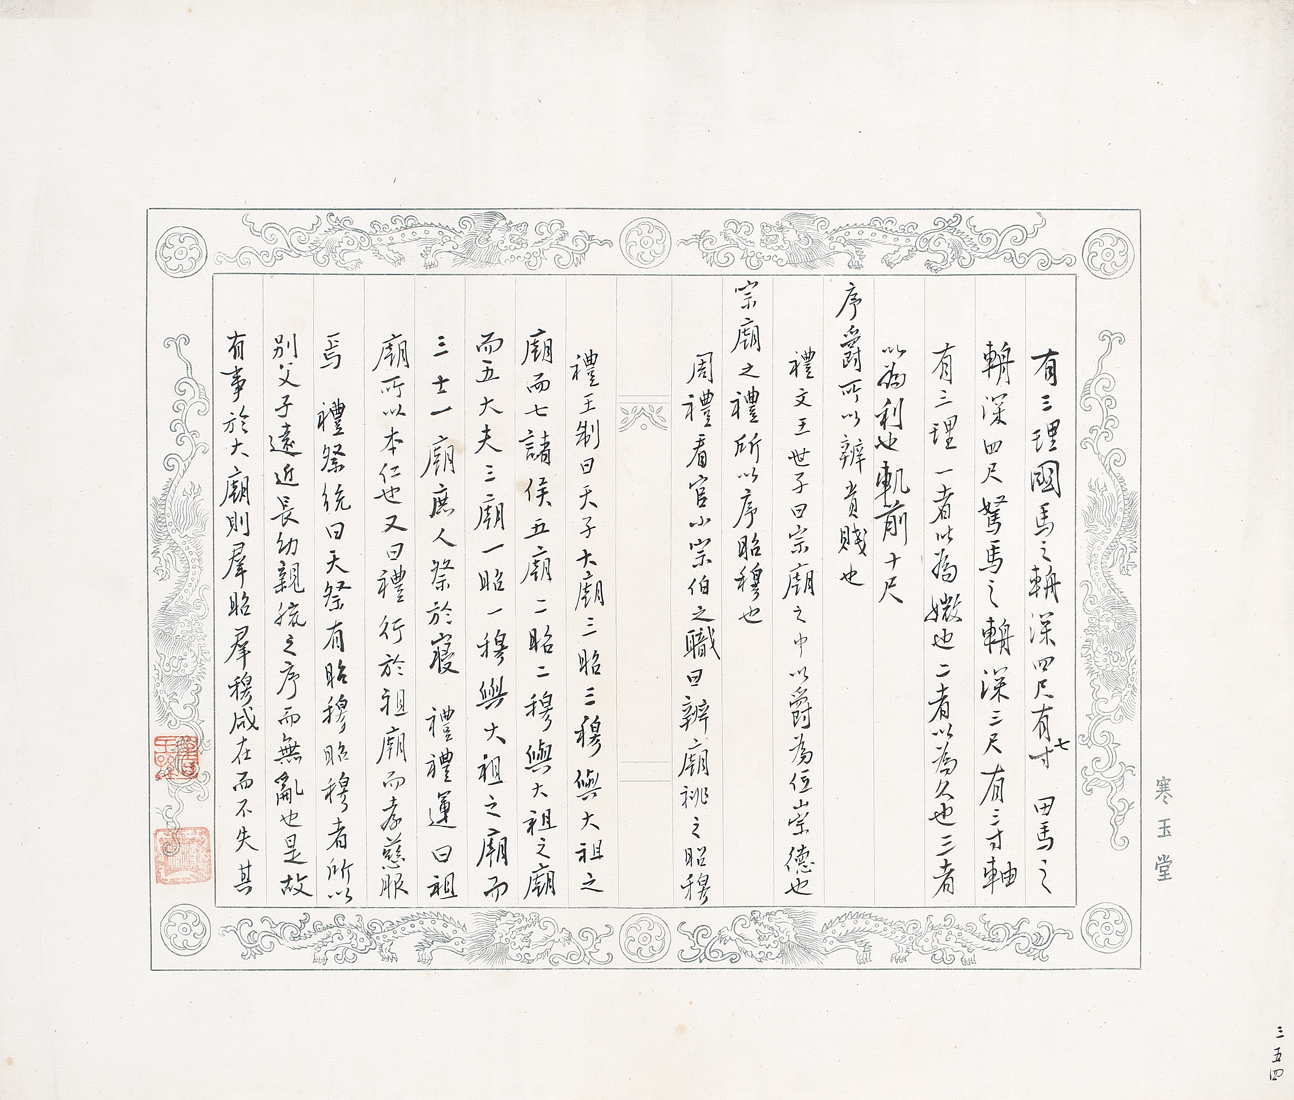 有三理國馬之輈深四尺有七寸　田馬之
輈深四尺駑馬之輈深三尺有三寸軸
有三理一者以為媺也二者以為久也三者
以為利也軓前十尺
序爵所以辨貴賤也
禮文王世子曰宗廟之中以爵為位崇德也
宗廟之禮所以序昭穆也
周禮看官小宗伯之職曰辨廟祧之昭穆
禮王制曰天子大廟三昭三穆與大祖之
廟而七諸侯五廟二昭二穆與大祖之廟
而五大夫三廟一昭一穆與大祖之廟而
三士一廟庶人祭於寢　禮禮運曰祖
廟所以本仁也又曰禮行於祖廟而孝慈服
焉　禮祭統曰夫祭有昭穆昭穆者所以
別父子遠近長幼親疏之序而無亂也是故
有事於大廟則羣昭羣穆咸在而不失其
寒玉堂
三五四